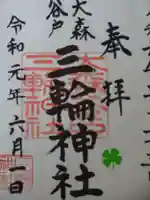 奉拝
大森
谷戸
三輪神社
令和元年六月一日